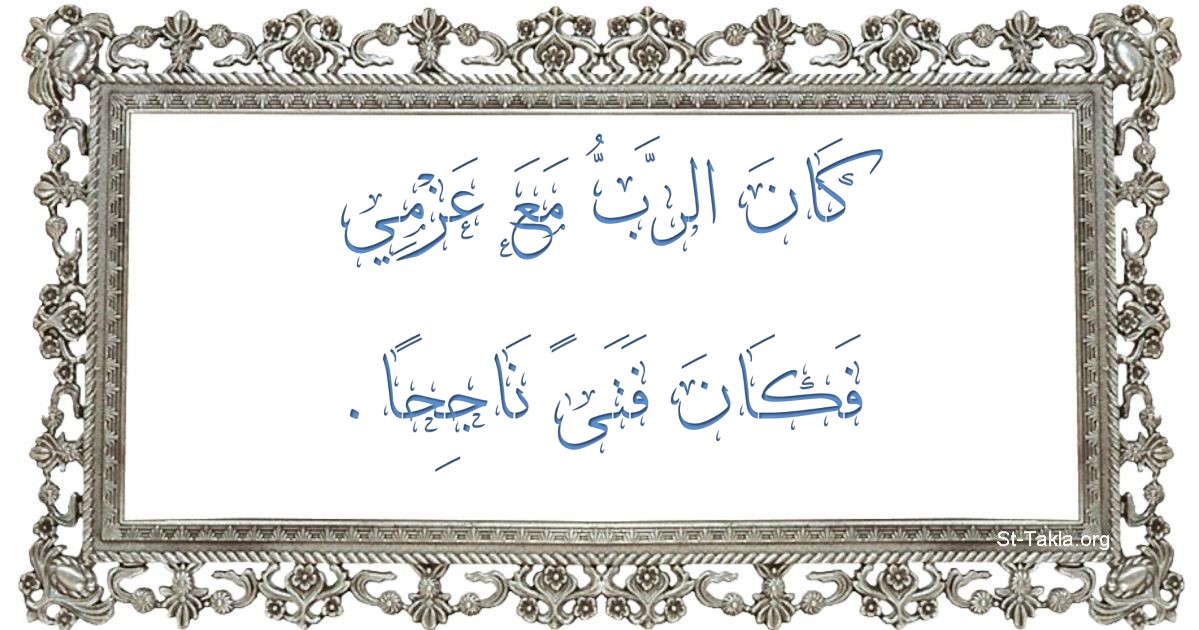 كَانَ الرَّبَُّ مَعَ عَزْمِي
فَكَانَ فَتَىً نَاجِحًا .
St-Takla.org